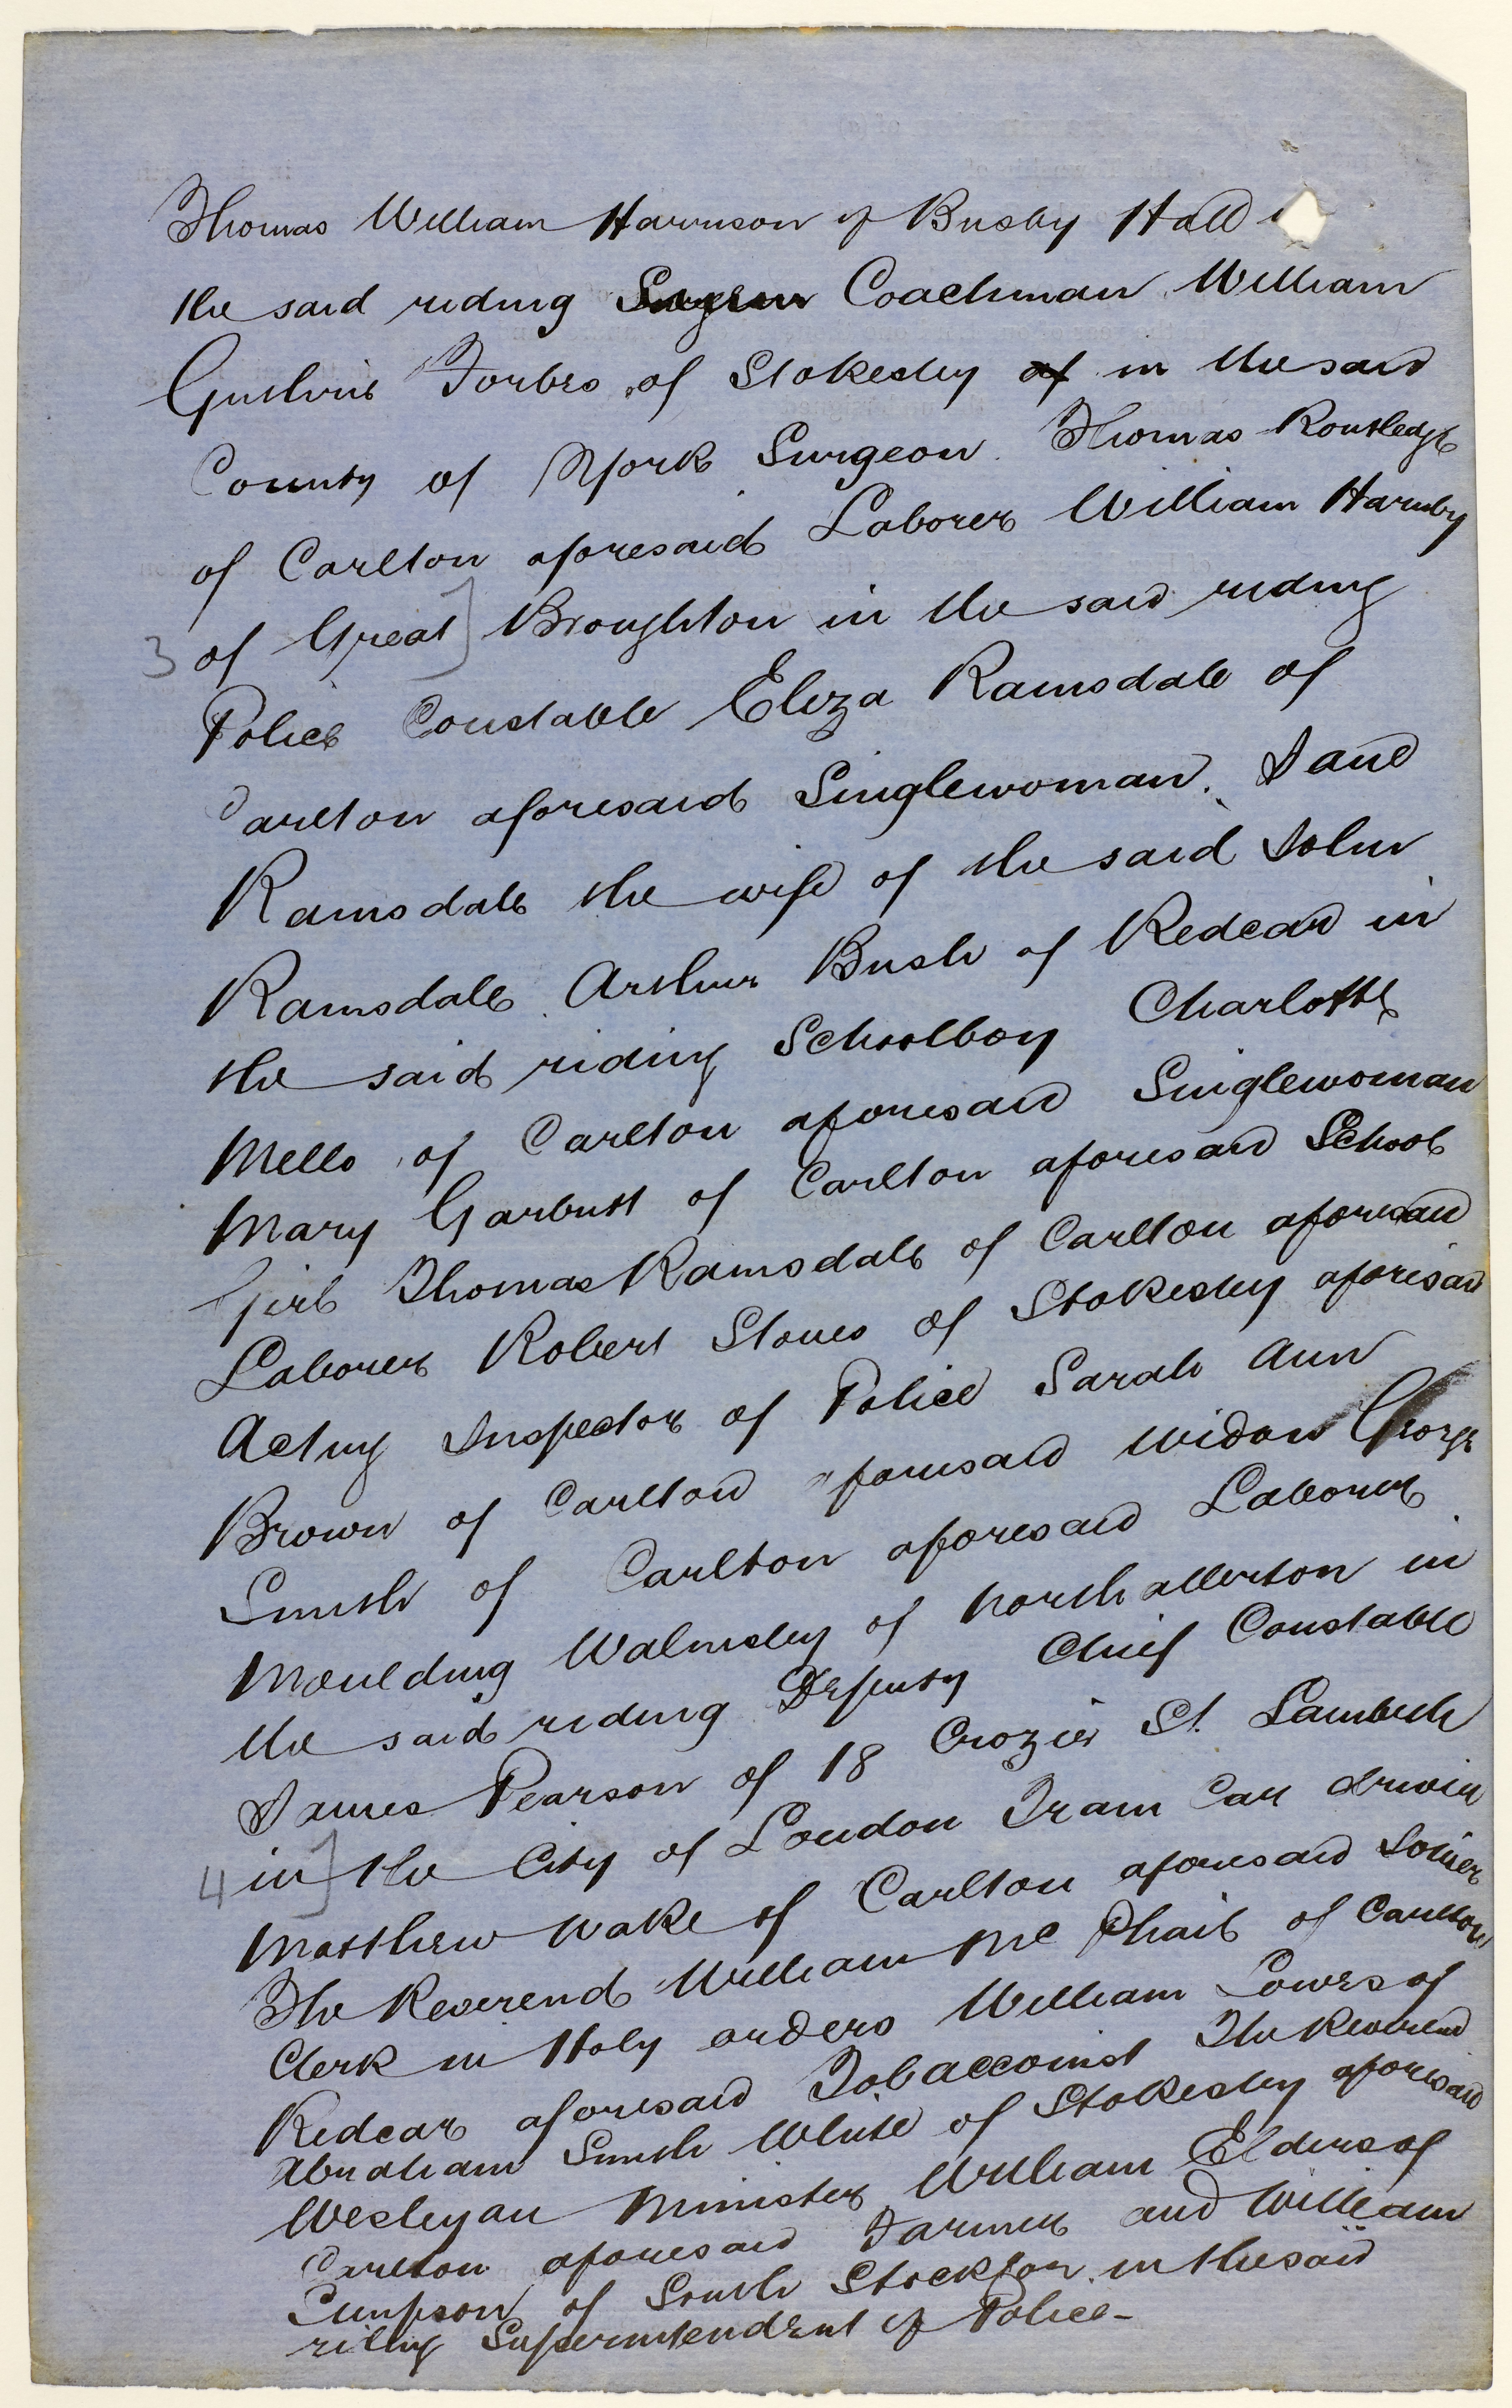 Thomas William Harrison of Busby Hall
the said riding Coachman William
Guthrie Forbes of Stokesley of in the said
County of York Surgeon. Thomas Routledge
of Carlton aforesaid Laborer William Harnby
3 of Great] Broughton in the said riding
Police Constable Eliza Ramsdale of
Carlton aforesaid Singlewoman. Jane
Ramsdale the wife of the said John
Ramsdale. Arthur Bush of Redcar in
the said riding Schoolboy Charlotte
Mello of Carlton aforesaid Singlewoman
Mary Garbutt of Carlton aforesaid School
Girl Thomas Ramsdale of Carlton aforesaid
Laborer Robert Stones of Stokesley aforesaid
Acting Inspector of Police Sarah Ann
Brown of Carlton aforesaid widow George
Smith of Carlton aforesaid Laborer
Moulding Walmsley of Northallerton in
the said riding Deputy Chief Constable
James Pearson of 18 Crozier St. Lambeth
4 in] the City of London Tram Car driver
Matthew Wake of Carlton aforesaid Joiner
The Reverend William Mc Phail of Carlton
Clerk in Holy orders William Lowes of
Redcar aforesaid Tobacconist The Reverend
Abraham Smith White of Stokesley aforesaid
Wesleyan Minister William Elders of
Carlton aforesaid Farmer and William
Simpson of South Stockton in the said
riding Superintendent of Police-